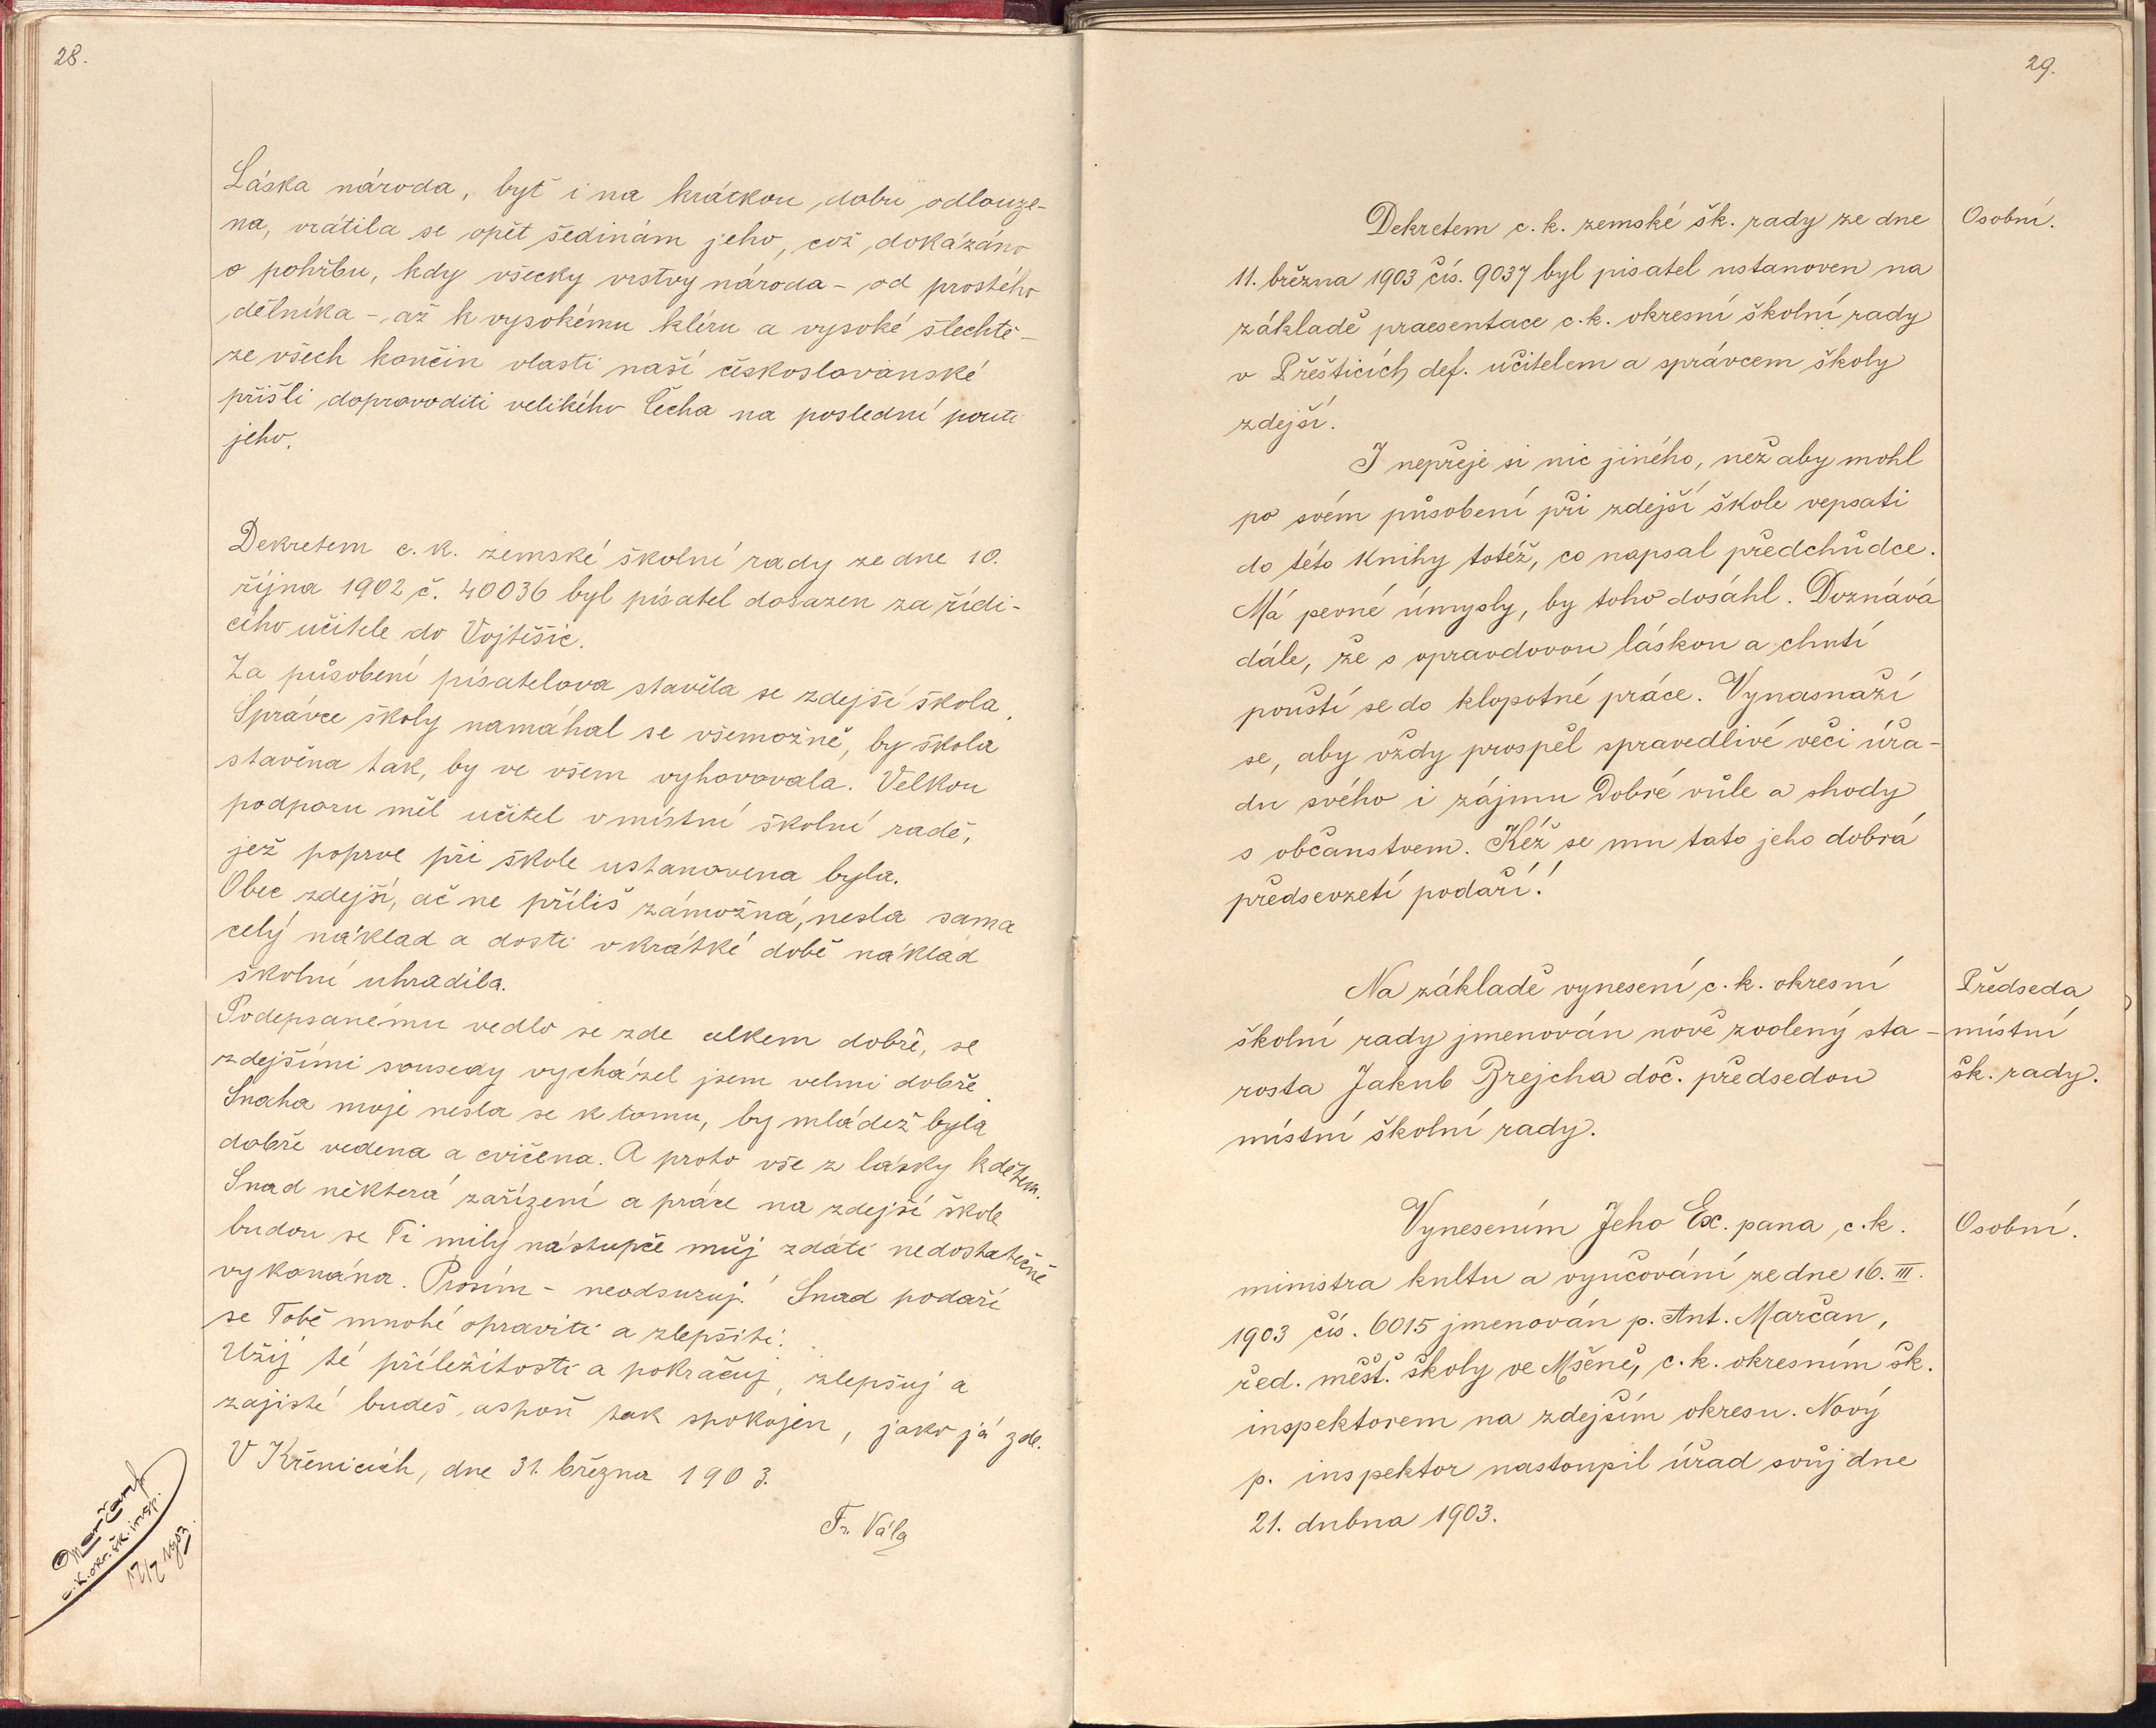 28.
Láska národa, byť i na krátkou dobu odlouze-
na, vrátila se opět šedinám jeho, což dokázáno
o pohřbu, kdy všecky vrstvy národa - od prostého
dělníka - až k vysokému kléru a vysoké šlechtě -
ze všech končin vlasti naší českoslovanské
přišli doprovoditi velikého Čecha na poslední pouti
jeho.
Dekretem c. k. zemské školní rady ze dne 10.
října 1902 č. 40036 byl pisatel dosazen za řídí-
cího učitele do Vojtěšic.
Za působení pisatelova stavěla se zdejší škola.
Správce školy namáhal se všemožně, by škola
stavěna tak, by ve všem vyhovovala. Velkou
podporu měl učitel v místní školní radě,
jež poprve při škole ustanovena byla.
Obec zdejší, ač ne příliš zámožná, nesla sama
celý náklad a dosti v krátké době náklad
školní uhradila.
Podepsanému vedlo se zde celkem dobře, se
zdejšími sousedy vycházel jsem velmi dobře.
Snaha moje nesla se k tomu, by mládež byla
dobře vedena a cvičena. A proto vše z lásky k dětem.
Snad některá zařízení a práce na zdejší škole
budou se Ti milý nástupče můj zdáti nedostatečně
vykonána. Prosím - neodsuzuj! Snad podaří
se Tobě mnohé opraviti a zlepšiti.
Užij té příležitosti a pokračuj, zlepšuj a
zajisté budeš aspoň tak spokojen, jako já zde.
V Křenicích, dne 31. března 1903.
Fr. Vála
Marčan
c. k. okr. šk. insp.
17/7 1903.
29.
Dekretem c. k. zemské šk. rady ze dne
Osobní.
11. března 1903 čís. 9037 byl pisatel ustanoven na
základě praesentace c. k. okresní školní rady
v Přešticích def. učitelem a správcem školy
zdejší.
I nepřeje si nic jiného, než aby mohl
po svém působení při zdejší škole vepsati
do této knihy totéž, co napsal předchůdce.
Má pevné úmysly, by toho dosáhl. Doznává
dále, že s opravdovou láskou a chutí
pouští se do klopotné práce. Vynasnaží
se, aby vždy prospěl spravedlivé věci úřa-
du svého i zájmu Dobré vůle a shody
s občanstvem. Kéž se mu tato jeho dobrá
předsevzetí podaří!
Na základě vynesení c. k. okresní
Předseda
školní rady jmenován nově zvolený sta-
místní
rosta Jakub Brejcha doč. předsedou
šk. rady.
místní školní rady.
Vynesením Jeho Ex. pana c. k.
Osobní.
ministra kultu a vyučování ze dne 16. III.
1903 čís. 6015 jmenován p. Ant. Marčan,
řed. měšť. školy ve Mšeně, c. k. okresním šk.
inspektorem na zdejším okresu. Nový
p. inspektor nastoupil úřad svůj dne
21. dubna 1903.